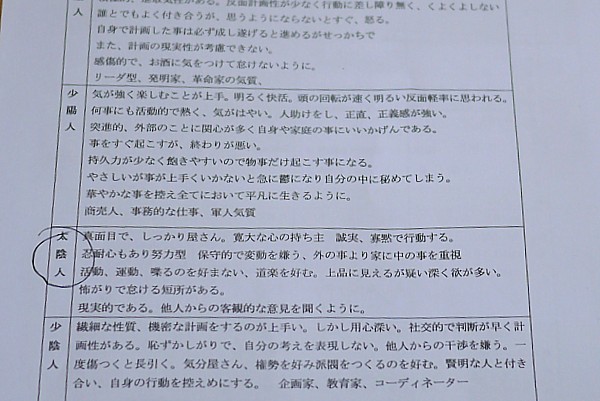 人
誰とでもよく付き合うが、思うようにならないとすぐ、怒る。
自身で計画した事は必ず成し遂げると進めるがせっかちで
また、計画の現実性が考慮できない。
感傷的で、お酒に気をつけて怠けないように。
リーダ型、発明家、革命家の気質、
少陽人
気が強く楽しむことが上手。明るく快活。頭の回転が速く明るい反面軽率に思われる。
何事にも活動的で熱く、気がはやい。人助けをし、正直、正義感が強い。
突進的、外部のことに関心が多く自身や家庭の事にいいかげんである。
事をすぐ起こすが、終わりが悪い。
持久力が少なく飽きやすいので物事だけ起こす事になる。
やさしいが事が上手くいかないと急に鬱になり自分の中に秘めてしまう。
華やかな事を控え全てにおいて平凡に生きるように。
商売人、事務的な仕事、軍人気質
太陰人
真面目で、しっかり屋さん。寛大な心の持ち主　誠実、寡黙で行動する。
忍耐心もあり努力型　保守的で変動を嫌う、外の事より家に中の事を重視
活動、運動、喋るのを好まない、道楽を好む。上品に見えるが疑い深く欲が多い。
怖がりで怠ける短所がある。
現実的である。他人からの客観的な意見を聞くように。
少陰人
繊細な性質、機密な計画をするのが上手い。しかし用心深い。社交的で判断が早く計
画性がある。恥ずかしがりで、自分の考えを表現しない。他人からの干渉を嫌う。一
度傷つくと長引く。気分屋さん、権勢を好み派閥をつくるのを好む。賢明な人と付き
合い、自身の行動を控えめにする。　企画家、教育家、コーディネーター